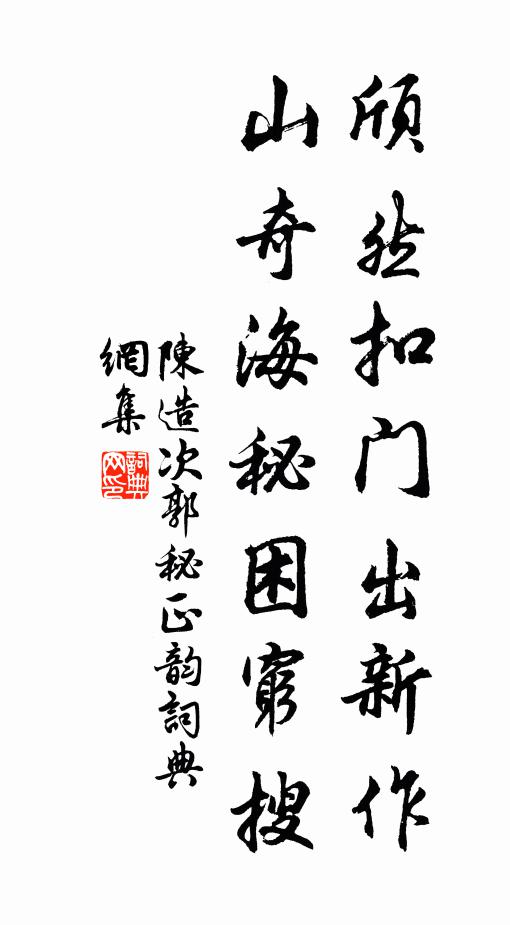 頎然扣门出新作
山奇海秘困窮搜
陳造次郭秘正韵詞典
網集
詞典网印